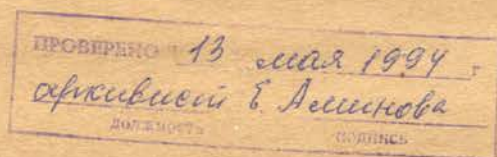 ПРОВЕРЕНО 13 мая 1994 г
архивист Е. Аминова
должность подпись